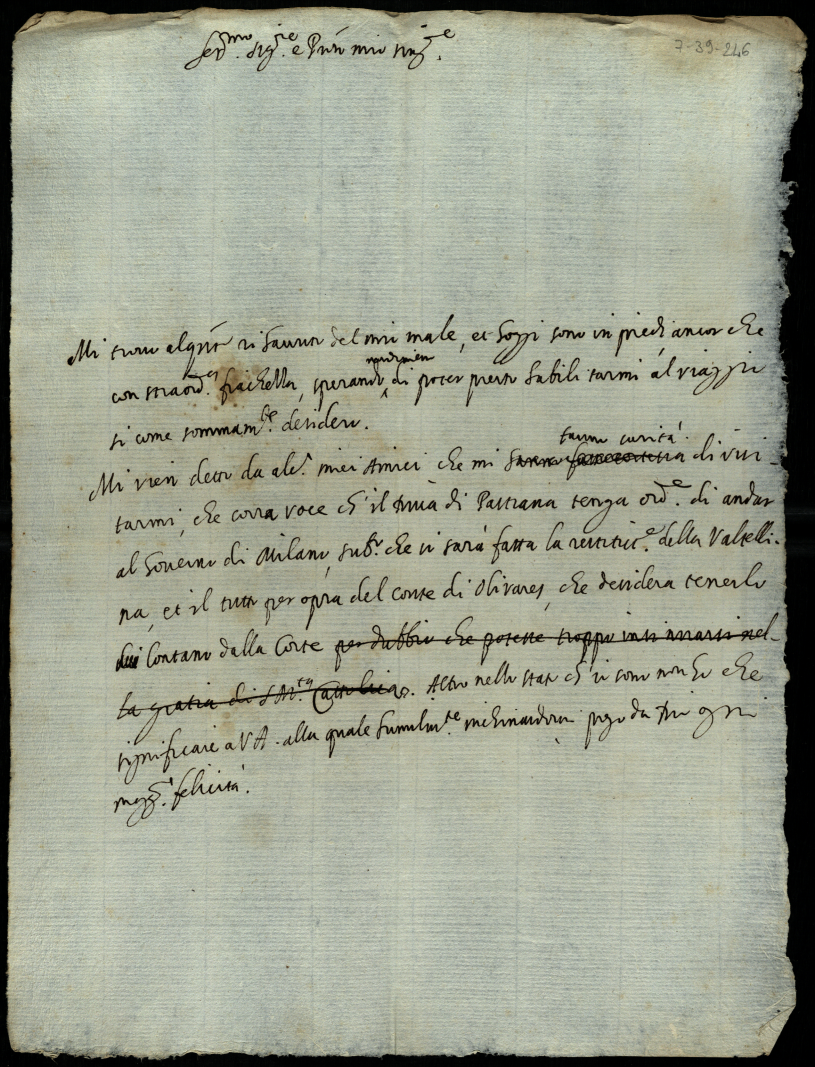 Ser.mo Sig.re e Prōn mio sing.e
7-39-246
Mi trovo alqto risanato del mio male, et hoggi sono in piedi ancor che
con straord.a fiachezza, sperando di poter presto habilitarmi al viaggio
nondimeno
si come sommam.te desidero.
Mi vien detto da alc.i miei Amici che mi hanno di visi-
fanno carità
tarmi, che corra voce ch' il Duca di Pastrana tenga ord.e di andar
al Governo di Milano, sub.o che si sarà fatta la restituz.e della Valtelli-
na, et il tutto per opra del conte di Olivares, che desidera tenerlo
lontano dalla Corte per dubbio che potesse troppo insinuarsi nel-
la gratia di S. M.tà Cattolica. Altro nello stato ch' si sono non ho che
significare a V A. alla quale humilm.te inchinandomi prego da Dio ogni
magg.r felicità.